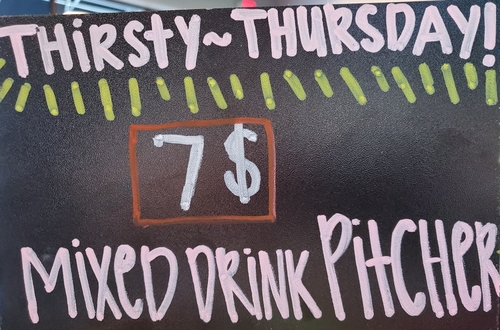 THIRSTY~THURSDAY!
7$
MIXED DRINK PITCHER